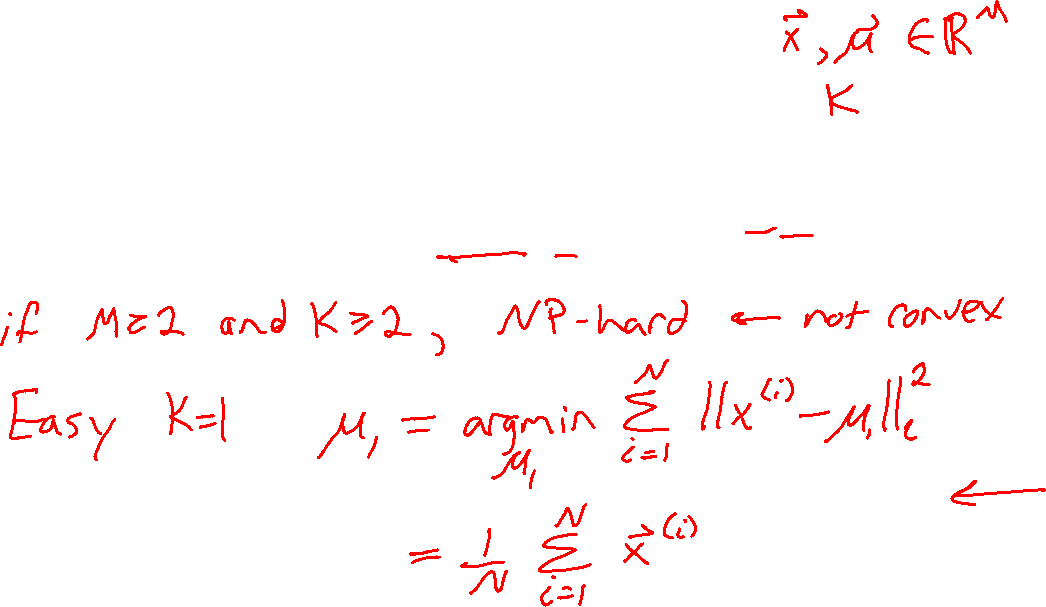 x⃗, μ⃗ ∈ ℝ^M
K
if M≥2 and K≥2, NP-hard ← not convex
Easy K=1 μ₁ = argmin_{μ₁} ∑_{i=1}^{N} ||x^{(i)} - μ₁||₂²
= 1/N ∑_{i=1}^{N} x⃗^{(i)}